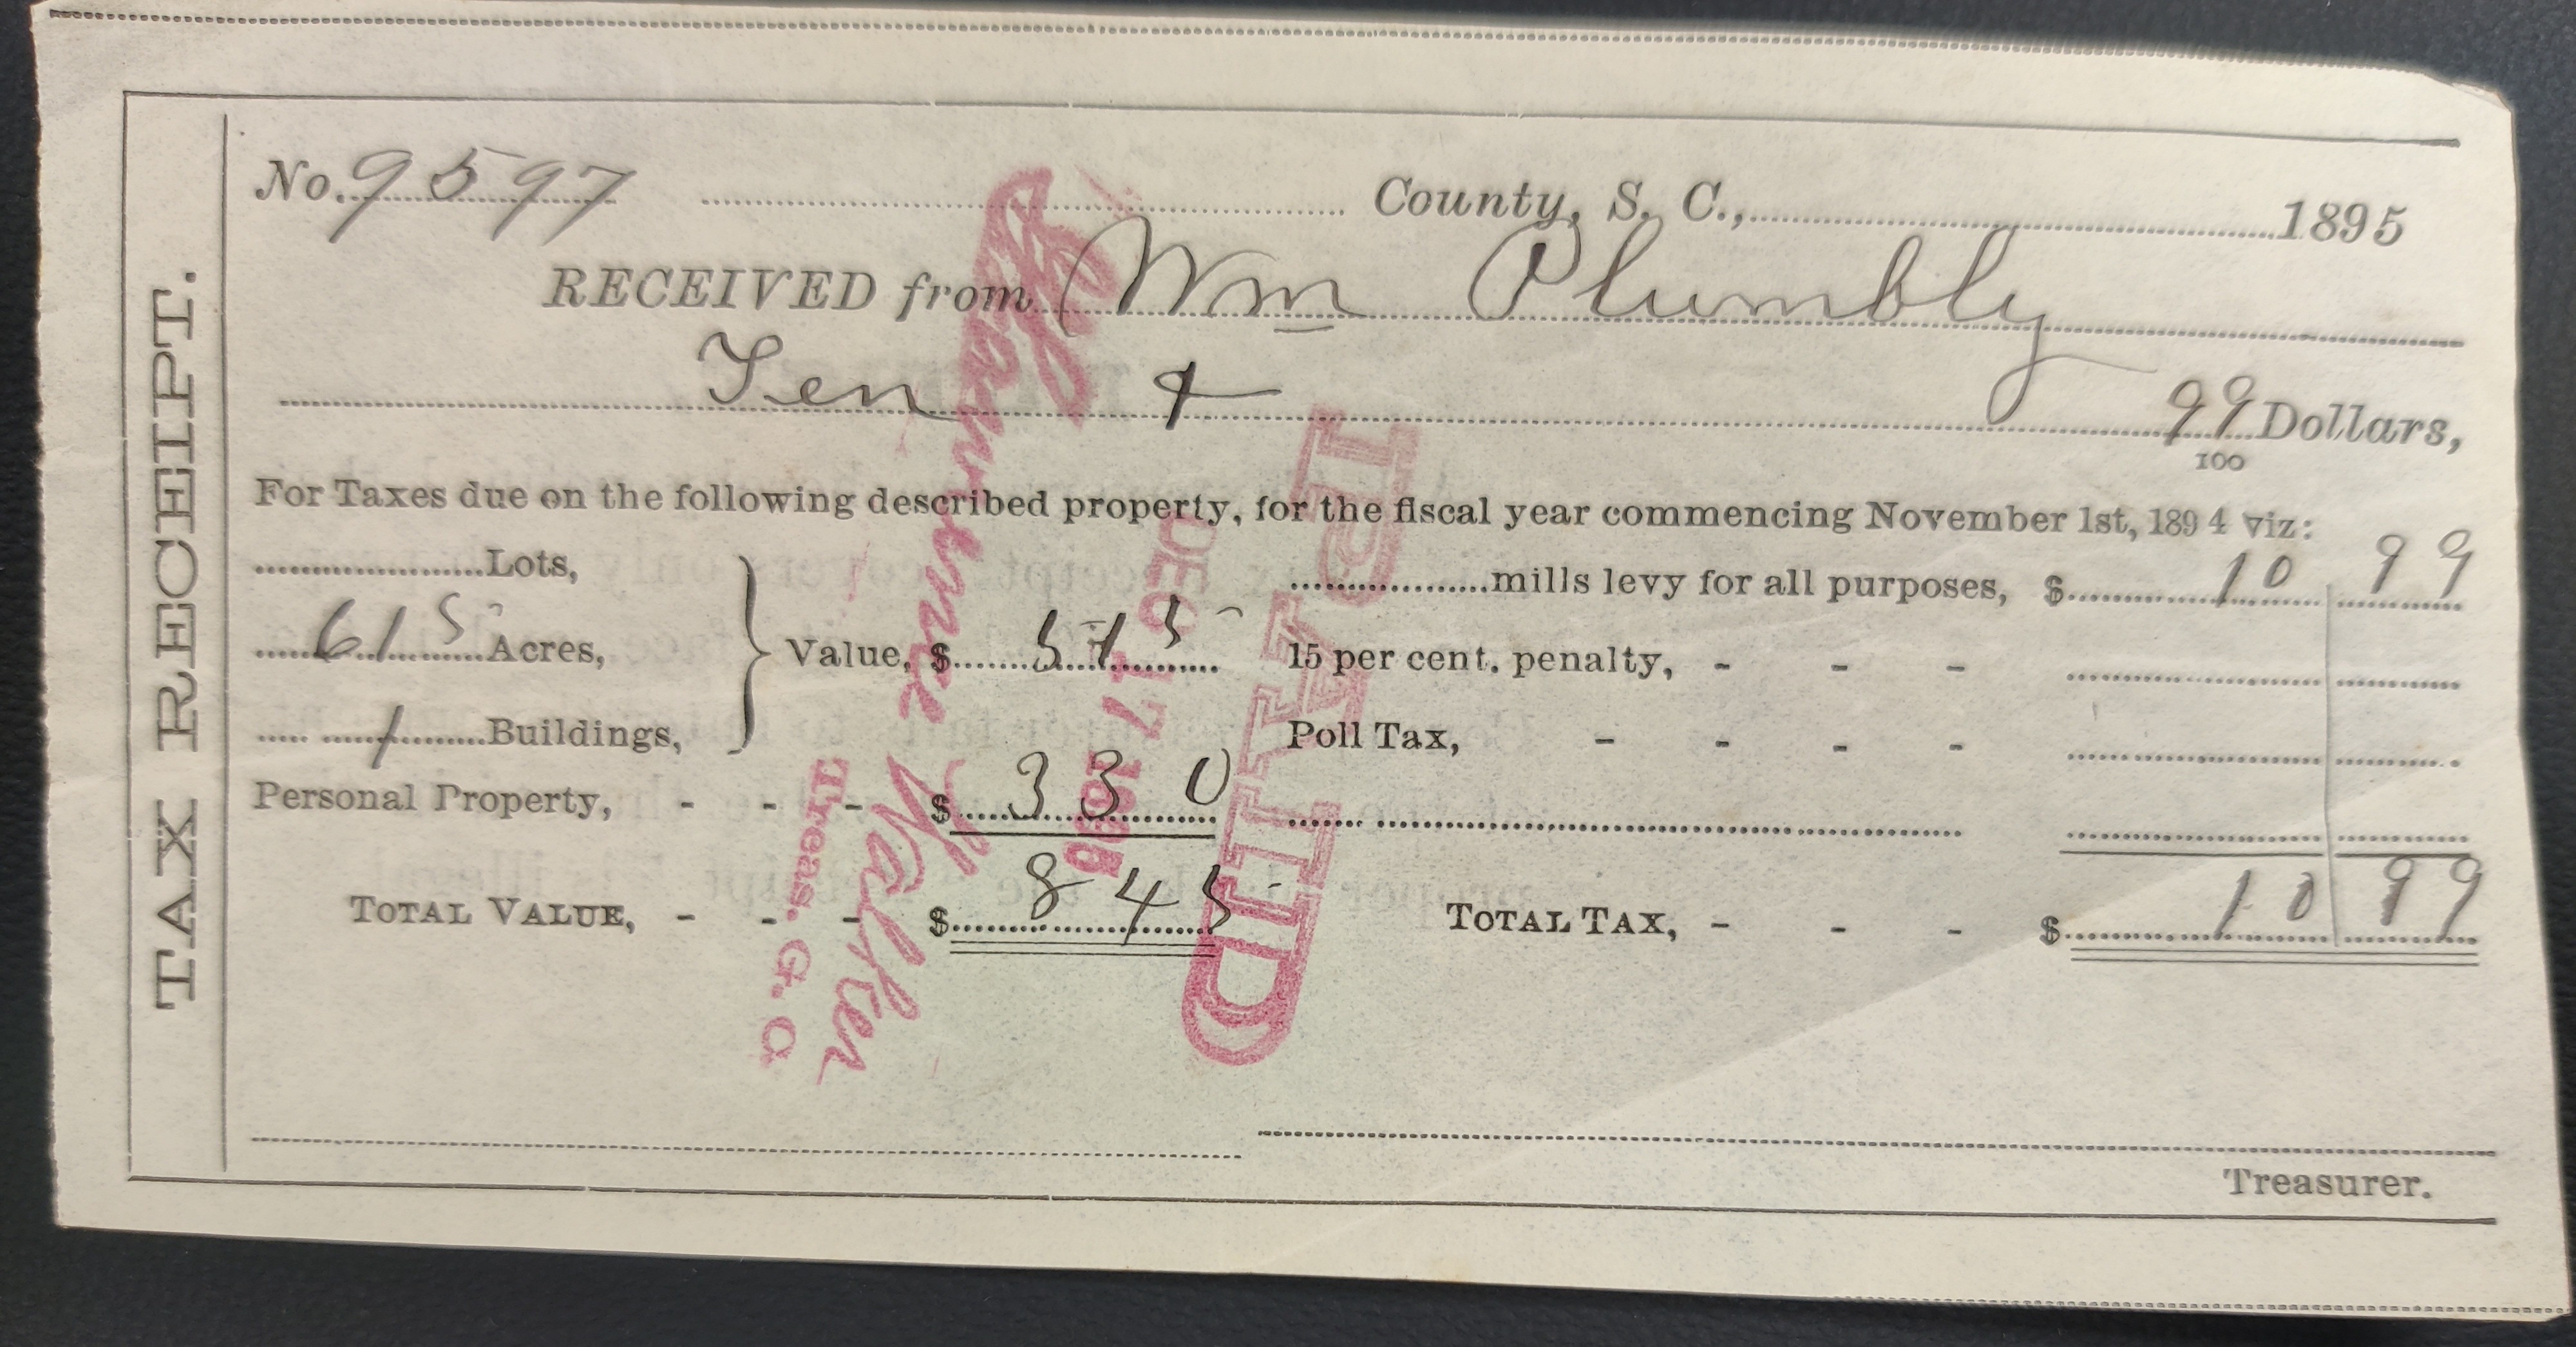 TAX RECEIPT.
No. 9597 County, S. C., 1895
RECEIVED from Wm Plumbly
Ten & 99/100 Dollars,
For Taxes due on the following described property, for the fiscal year commencing November 1st, 1894 viz:
Lots,
615 Acres,
1 Buildings,
Value, $ 515
Personal Property, - - - $ 330
TOTAL VALUE, - - - $ 845
mills levy for all purposes, $ 10 99
15 per cent. penalty, - - -
Poll Tax, - - - -
TOTAL TAX, - - - $ 10 99
Treasurer.
Walker
Treas. G. C.
DEC 17 1895
PAID